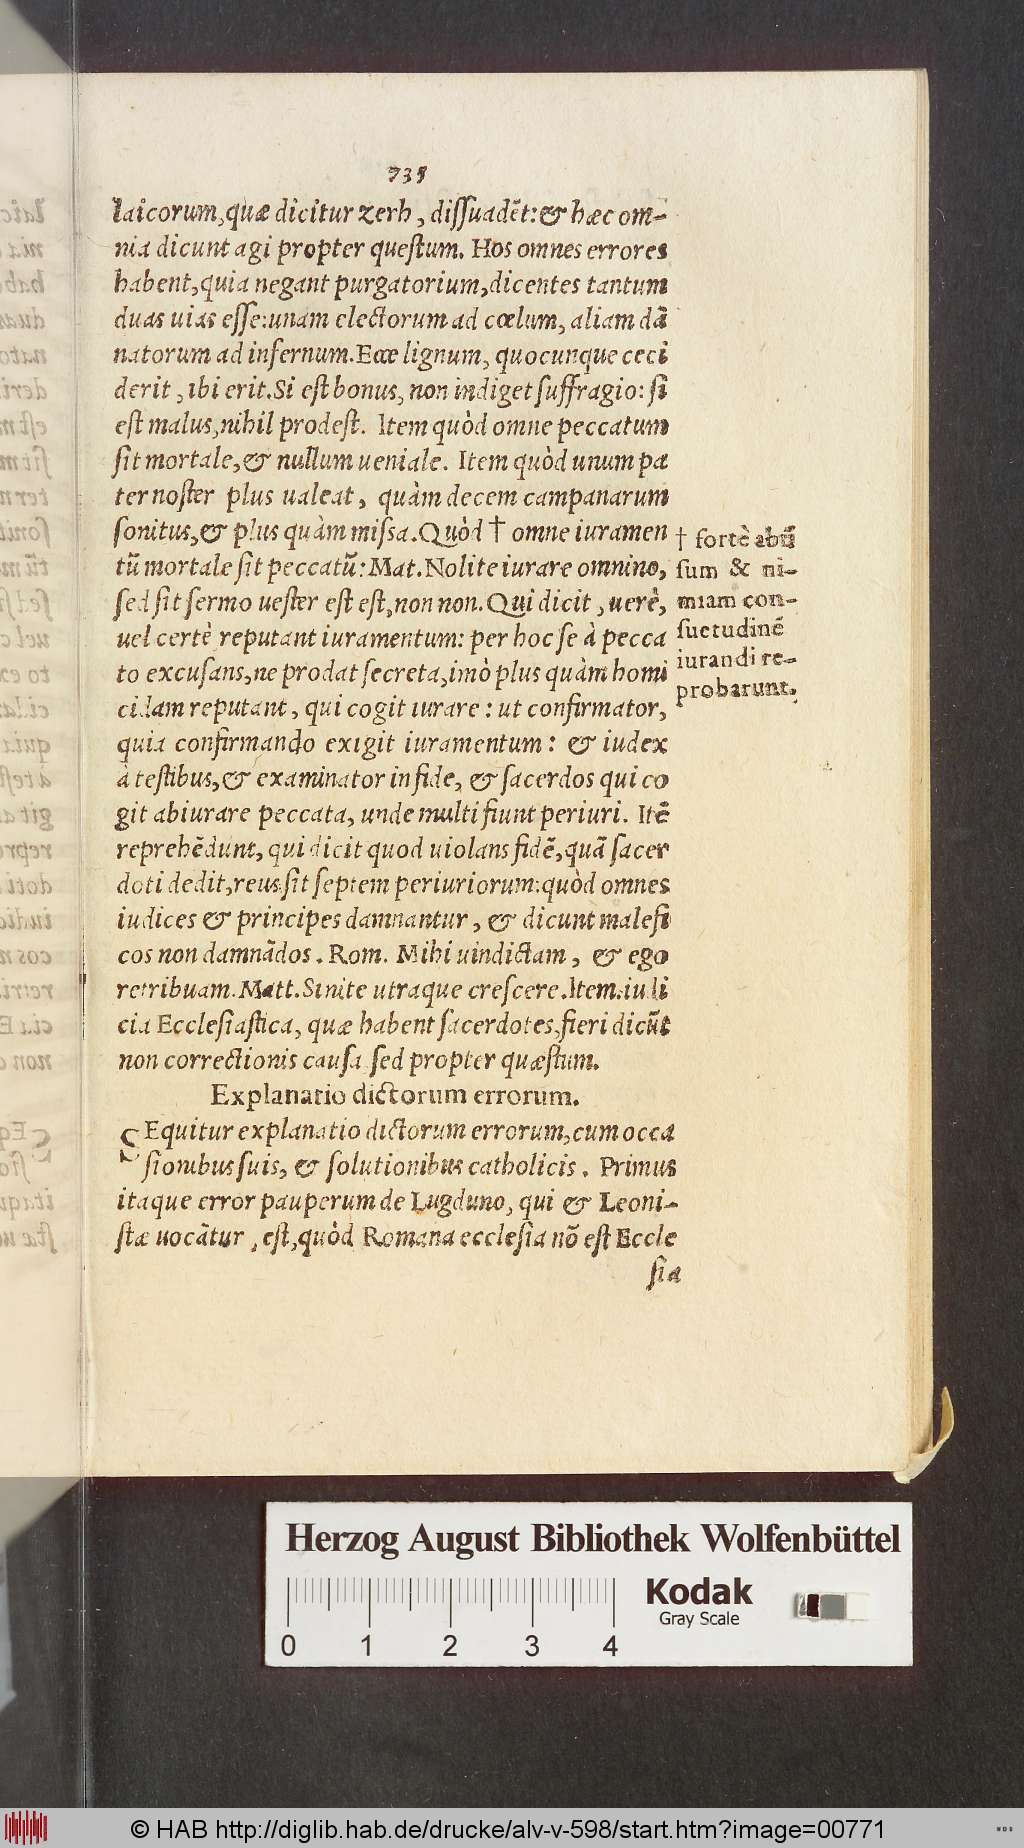 735
laicorum, quæ dicitur zerh, dissuadēt: & hæc om-
nia dicunt agi propter questum. Hos omnes errores
habent, quia negant purgatorium, dicentes tantum
duas uias esse: unam electorum ad cœlum, aliam dā
natorum ad infernum. Ecce lignum, quocunque ceci
derit, ibi erit. Si est bonus, non indiget suffragio: si
est malus, nihil prodest. Item quòd omne peccatum
sit mortale, & nullum ueniale. Item quòd unum pa
ter noster plus ualeat, quàm decem campanarum
sonitus, & plus quàm missa. Quòd † omne iuramen
tū mortale sit peccatū: Mat. Nolite iurare omnino,
sed sit sermo uester est est, non non. Qui dicit, uerè,
uel certè reputant iuramentum: per hoc se à pecca
to excusans, ne prodat secreta, imò plus quàm homi
cidam reputant, qui cogit iurare: ut confirmator,
quia confirmando exigit iuramentum: & iudex
à testibus, & examinator in fide, & sacerdos qui co
git abiurare peccata, unde multi fiunt periuri. Itē
reprehēdunt, qui dicit quod uiolans fidē, quā sacer
doti dedit, reus sit septem periuriorum: quòd omnes
iudices & principes damnantur, & dicunt malefi
cos non damnādos. Rom. Mihi uindictam, & ego
retribuam. Matt. Sinite utraque crescere. Item iudi
cia Ecclesiastica, quæ habent sacerdotes, fieri dicūt
non correctionis causa sed propter quæstum.
† fortè abū
sum & ni-
miam con-
suetudinē
iurandi re-
probarunt.
Explanatio dictorum errorum.
SEquitur explanatio dictorum errorum, cum occa
sionibus suis, & solutionibus catholicis. Primus
itaque error pauperum de Lugduno, qui & Leoni-
stæ uocātur, est, quòd Romana ecclesia nō est Eccle
sia
Herzog August Bibliothek Wolfenbüttel
Kodak
Gray Scale
0 1 2 3 4
© HAB http://diglib.hab.de/drucke/alv-v-598/start.htm?image=00771